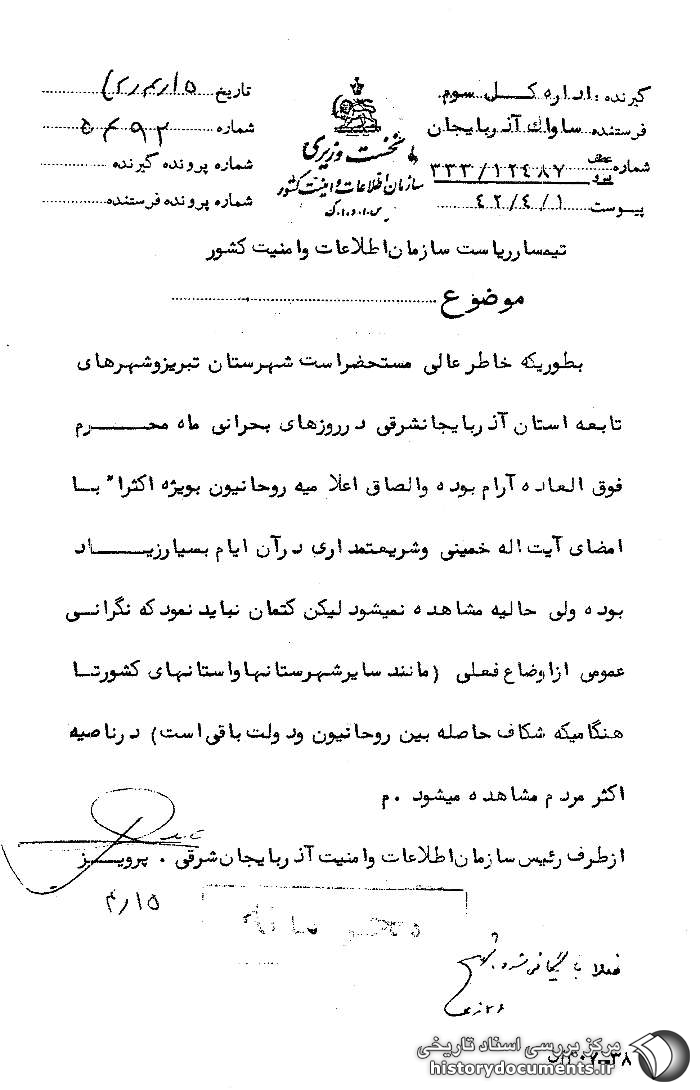 گیرنده : اداره کل سوم
فرستنده ساواک آذربایجان
شماره عطف پیرو ۳۳۳/۱۲٤۸۷
پیوست ٤۲/٤/۱
نخست وزیری
سازمان اطلاعات و امنیت کشور
س.ا.و.ا.ک
تاریخ
شماره ۵۶۹۲
شماره پرونده گیرنده
شماره پرونده فرستنده
تیمسار ریاست سازمان اطلاعات وامنیت کشور
موضوع
بطوریکه خاطر عالی مستحضر است شهرستان تبریز و شهرهای
تابعه استان آذربایجانشرقی در روزهای بحرانی ماه محرم
فوق العاده آرام بوده والصاق اعلامیه روحانیون بویژه اکثرا" با
امضای آیت اله خمینی وشریعتمداری در آن ایام بسیار زیاد
بوده ولی حالیه مشاهده نمیشود لیکن کتمان نباید نمود که نگرانی
عمومی از اوضاع فعلی (مانند سایر شهرستانها واستانهای کشور تا
هنگامیکه شکاف حاصله بین روحانیون ودولت باقی است) درناصیه
اکثر مردم مشاهده میشود .م
ازطرف رئیس سازمان اطلاعات وامنیت آذربایجان شرقی . پرویز
۱۵ر۴
فعلا بایگانی شود
مرکز بررسی اسناد تاریخی
historydocuments.ir